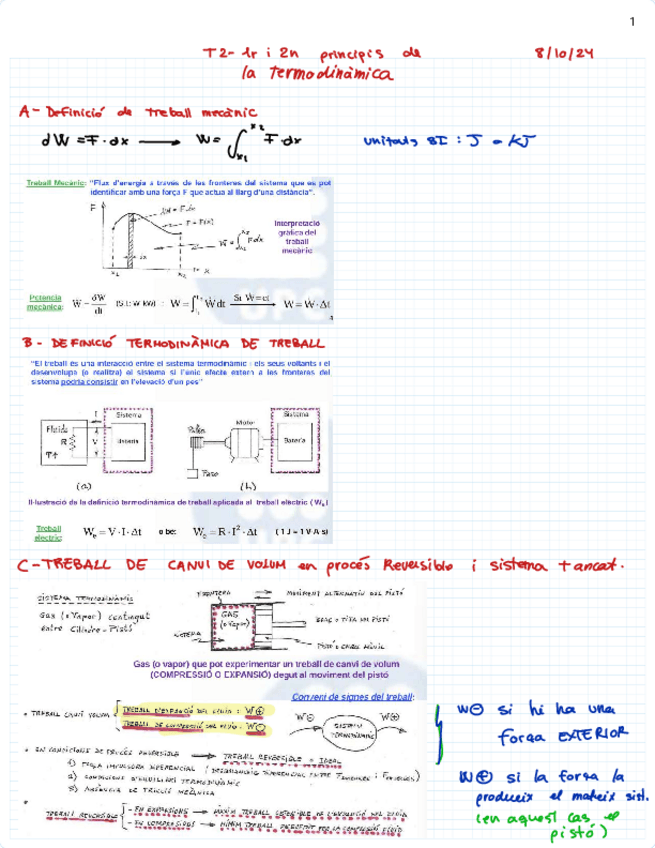 1
T2- 1r i 2n principis de
la termodinàmica
8/10/24
A- Definició de treball mecànic
dW = F·dx → W = ∫x1 x2 F·dx
unitats SI : J - KJ
Treball Mecànic: "Flux d'energia a través de les fronteres del sistema que es pot
identificar amb una força F que actua al llarg d'una distància".
F
F = F(x)
dx
x1
x2
x
Interpretació
gràfica del
treball
mecànic
Potència
mecànica:
Ẇ = dW/dt (S.I.: W, kW) : W = ∫ Ẇ dt Si Ẇ=ct → W = Ẇ·Δt
B - DEFINICIÓ TERMODINÀMICA DE TREBALL
"El treball és una interacció entre el sistema termodinàmic i els seus voltants i el
desenvolupa (o realitza) el sistema si l'únic efecte extern a les fronteres del
sistema podria consistir en l'elevació d'un pes"
Sistema
Fluido
R
T↑
I
V
Bateria
(a)
Motor
Sistema
Bateria
Peso
(b)
Il·lustració de la definició termodinàmica de treball aplicada al treball elèctric (We)
Treball
elèctric:
We = V·I·Δt o bé: We = R·I²·Δt (1J = 1V·A·s)
C-TREBALL DE CANVI DE VOLUM en procés Reversible i sistema tancat.
SISTEMA TERMODINÀMIC
Gas (o Vapor) contingut
entre Cilindre-Pistó
FRONTERA
MOVIMENT ALTERNATIU DEL PISTÓ
GAS
(o Vapor)
PISTÓ o ÈMBOL MÒBIL
Gas (o vapor) que pot experimentar un treball de canvi de volum
(COMPRESSIÓ O EXPANSIÓ) degut al moviment del pistó
Conveni de signes del treball:
• TREBALL CANVI VOLUM
TREBALL D'EXPANSIÓ DEL FLUID : W⊕
TREBALL DE COMPRESSIÓ DEL FLUID : W⊖
W⊖
SISTEMA
TERMODINÀMIC
W⊕
• EN CONDICIONS DE PROCÉS REVERSIBLE → TREBALL REVERSIBLE o IDEAL
1) FORÇA IMPULSORA DIFERENCIAL
2) CONDICIONS D'EQUILIBRI TERMODINÀMIC
3) ABSÈNCIA DE FRICCIÓ MECÀNICA
• TREBALL REVERSIBLE
- EN EXPANSIONS → MÀXIM TREBALL
- EN COMPRESSIONS → MÍNIM TREBALL
W⊖ si hi ha una
força EXTERIOR
W⊕ si la força la
produeix el mateix sist.
(en aquest cas el
pistó)